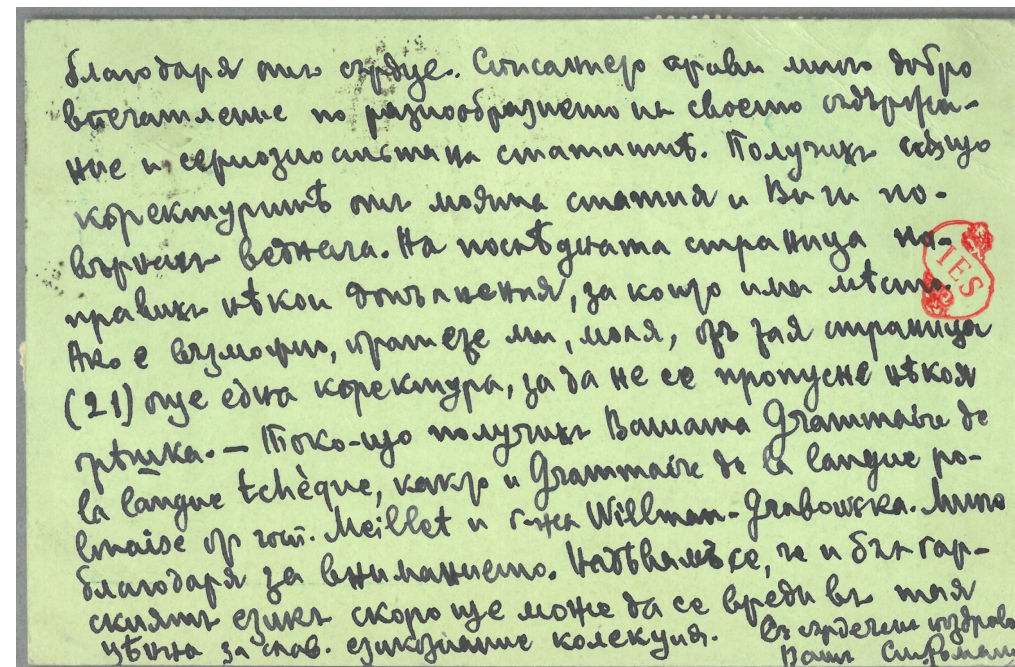 благодаря отъ сърдце. Списанието прави много добро
впечатление по разнообразието на своето съдържа-
ние и сериозностьта на статиитѣ. Получихъ също
коректуритѣ отъ моята статия и Ви ги по-
върнахъ веднага. На послѣдната страница на-
правихъ нѣкои допълнения, за които има мѣсто.
Ако е възможно, пратете ми, моля, отъ тая страница
(21) още една коректура, за да не се пропусне нѣкоя
грѣшка. — Токо-що получихъ Вашата Grammaire de
la langue tchèque, както и Grammaire de la langue po-
lonaise от Meillet и г-жа Willman-Grabowska. Много
благодаря за вниманието. Надѣвамъ се, че и българ-
скиятъ езикъ скоро ще може да се вреди въ тая
цѣнна за слав. езикознание колекция. Съ сърдеченъ поздравъ
Вашъ Ст. Романски
IES